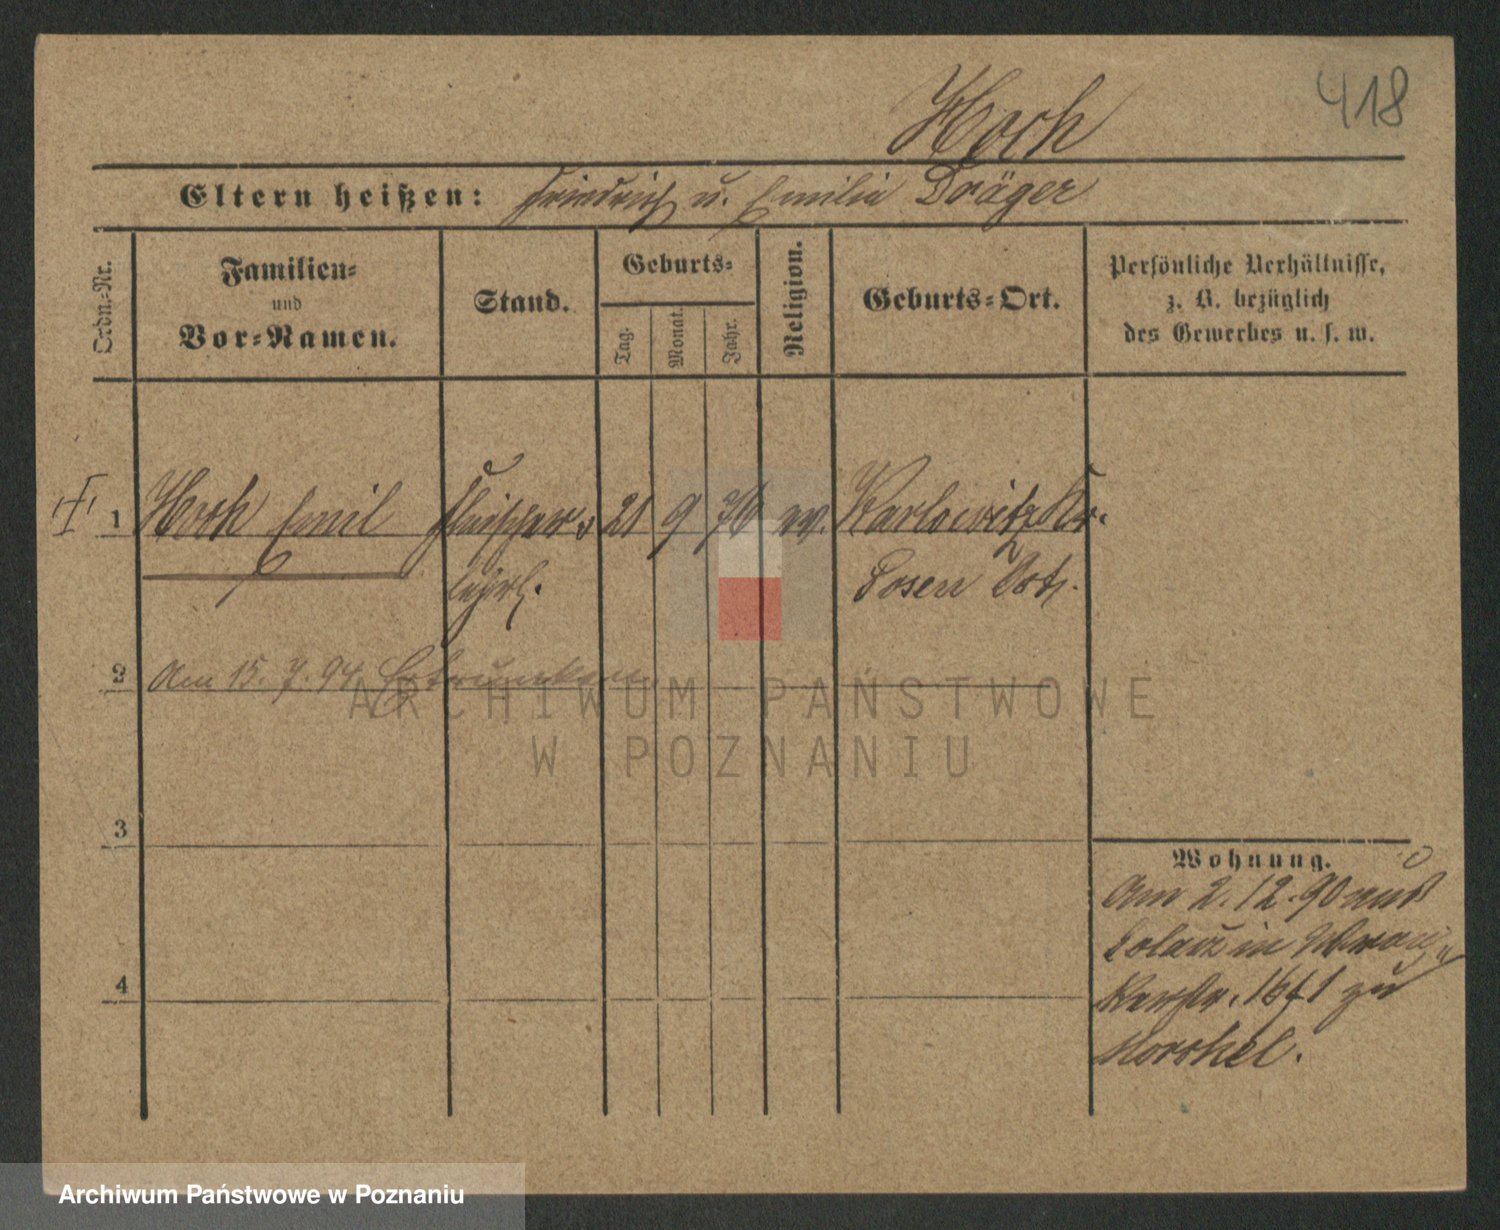 418
Hoch
Eltern heißen: Friedrich u. Emilie Dräger
Ordn.-Nr.
Familien-
und
Vor-Namen.
Stand.
Geburts-
Tag.
Monat.
Jahr.
Religion.
Geburts-Ort.
Persönliche Verhältnisse,
z. B. bezüglich
des Gewerbes u. s. w.
1 Hoch Emil Fleischer 21 9 76 ev. Karlowitz Kr.
lehrl. Posen Ost.
2 Am 15. 7. 94 Ertrunken
3
4
Wohnung.
Am 2. 12. 90 aus
in
zu
ARCHIWUM PAŃSTWOWE
W POZNANIU
Archiwum Państwowe w Poznaniu